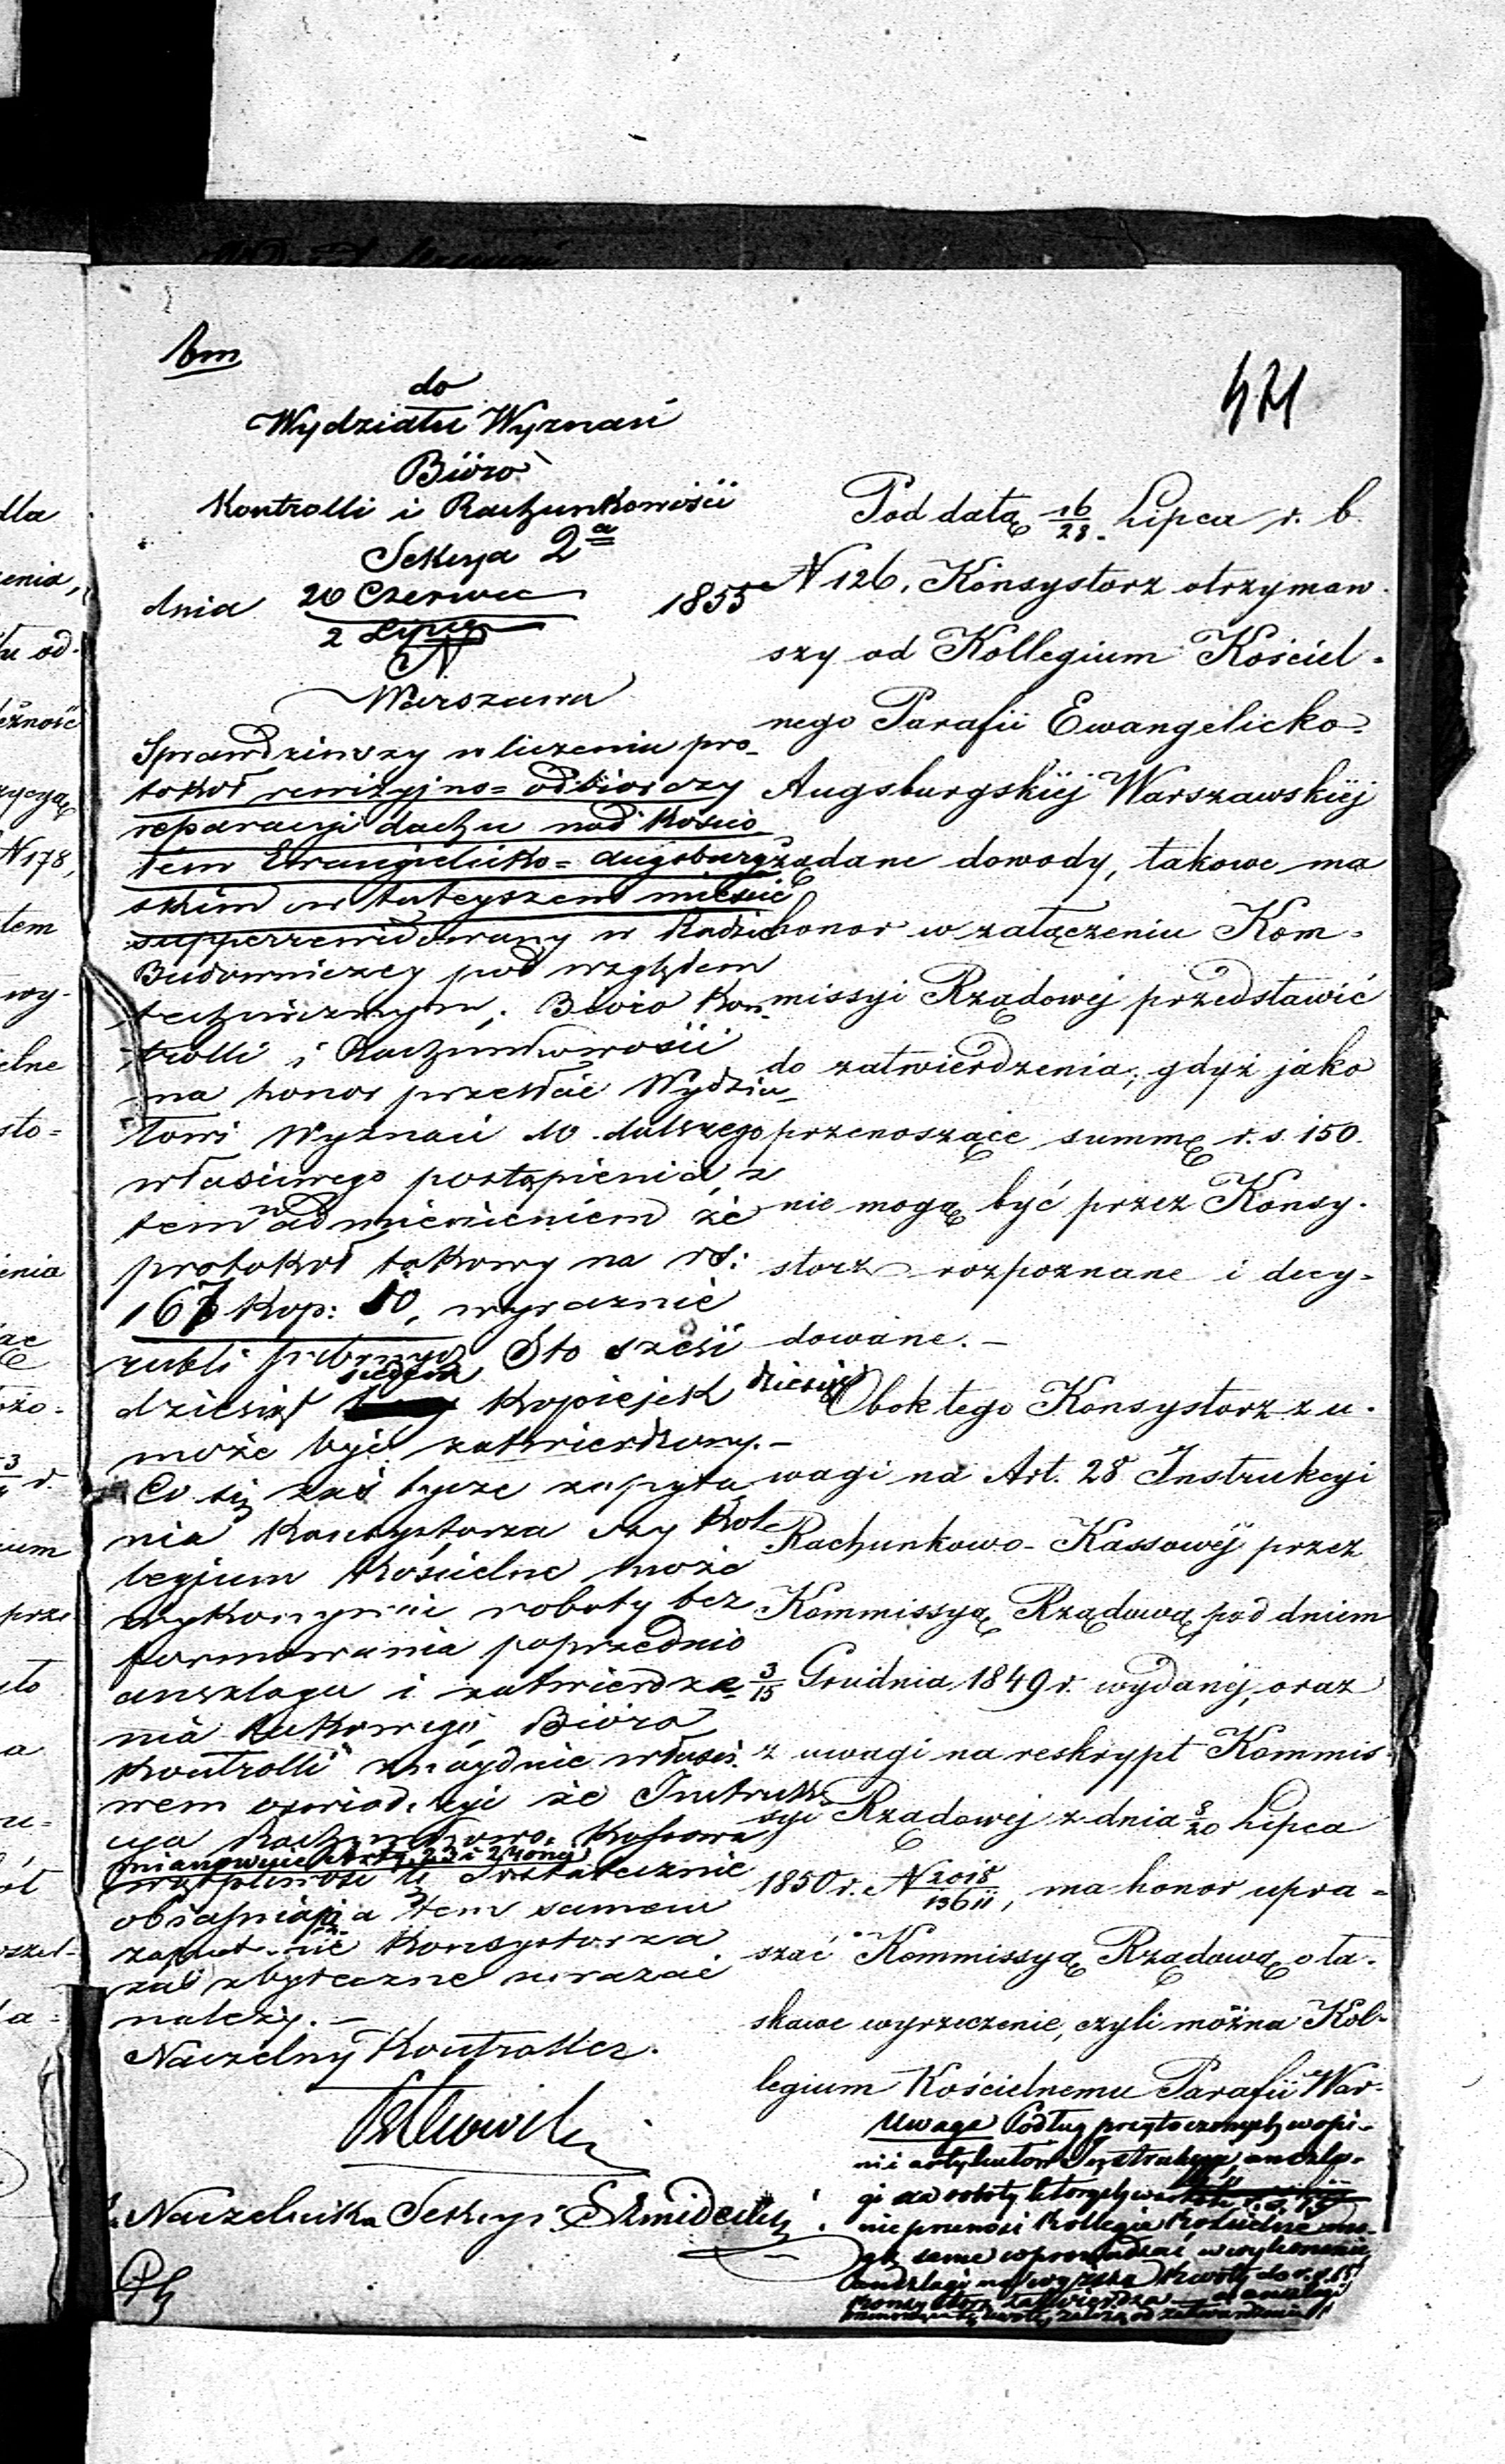 do
Wydziału Wyznań
Bióro
Kontrolli i Rachunkowości
Sekcya 2a
dnia 20 Czerwca 1855
2 Lipca
N
Warszawa
Sprawdziwszy w liczeniu pro-
tokół rewizyjno=odbiorczy
reparacyi dachu nad kościo
łem Ewangielicko=Augsburg-
skim w tuteyszem mieście
supperrewidowany w Radzie
Budowniczey pod względem
technicznym, Bióro Kon-
trolli i Rachunkowości
ma honor przesłać Wydzia-
łowi Wyznań do dalszego
właściwego postąpienia, z
tem nadmienieniem że
protokół takowy na rs:
167 kop: 10, wyraźnie
rubli srebrnych Sto sześć
dziesiąt siedem kopiejek dziesięć
może być zatwierdzony.-
Co się zaś tycze zapyta
nia Konsystorza czy Kol-
legium Kościelne może
wykonywać roboty bez
formowania poprzednio
anszlagu i zatwierdze-
nia takowego, Bióro
Kontrolli znayduie właści-
wem że Instruk
cya Rachunkowo-Kassowa
mianowicie
wątpliwość tę dostatecznie
obiaśnia, a tem samem
Konsystorza
za zbyteczne uważać
należy.-
Naczelny Kontroller.
Naczelnika Sekcyi
421
Pod datą 16/28. Lipca r. b.
N 126, Konsystorz otrzymaw-
szy od Kollegium Kościel-
nego Parafii Ewangelicko-
Augsburgskiéj Warszawskiéj
żądane dowody, takowe ma
honor w załączeniu Kom-
missyi Rządowéj przedstawić
do zatwierdzenia, gdyż jako
przenoszące summę r. s. 150.
nie mogą być przez Konsy-
storz rozpoznane i decy-
dowane.-
Obok tego Konsystorz z u-
wagi na Art. 28 Instrukcyi
Rachunkowo-Kassowéj przez
Kommissyą Rządową pod dniem
3/15 Grudnia 1849 r. wydanéj, oraz
z uwagi na reskrypt Kommis-
syi Rządowej z dnia 8/20 Lipca
1850 r. N 2018/13611, ma honor upra-
szać Kommissyą Rządową o ła-
skawe wyrzeczenie, czyli można Kol-
legium Kościelnemu Parafii War-
Uwaga Podług przytoczonych w opi-
nii artykułów Instrukcyi, anszla-
gi na roboty których wartość
nie przenosi Kollegia Kościelne mo-
gą same wprowadzać w wykonanie,
anszlagi na wyższą kwotę do r.s.
Konsystorz zatwierdza